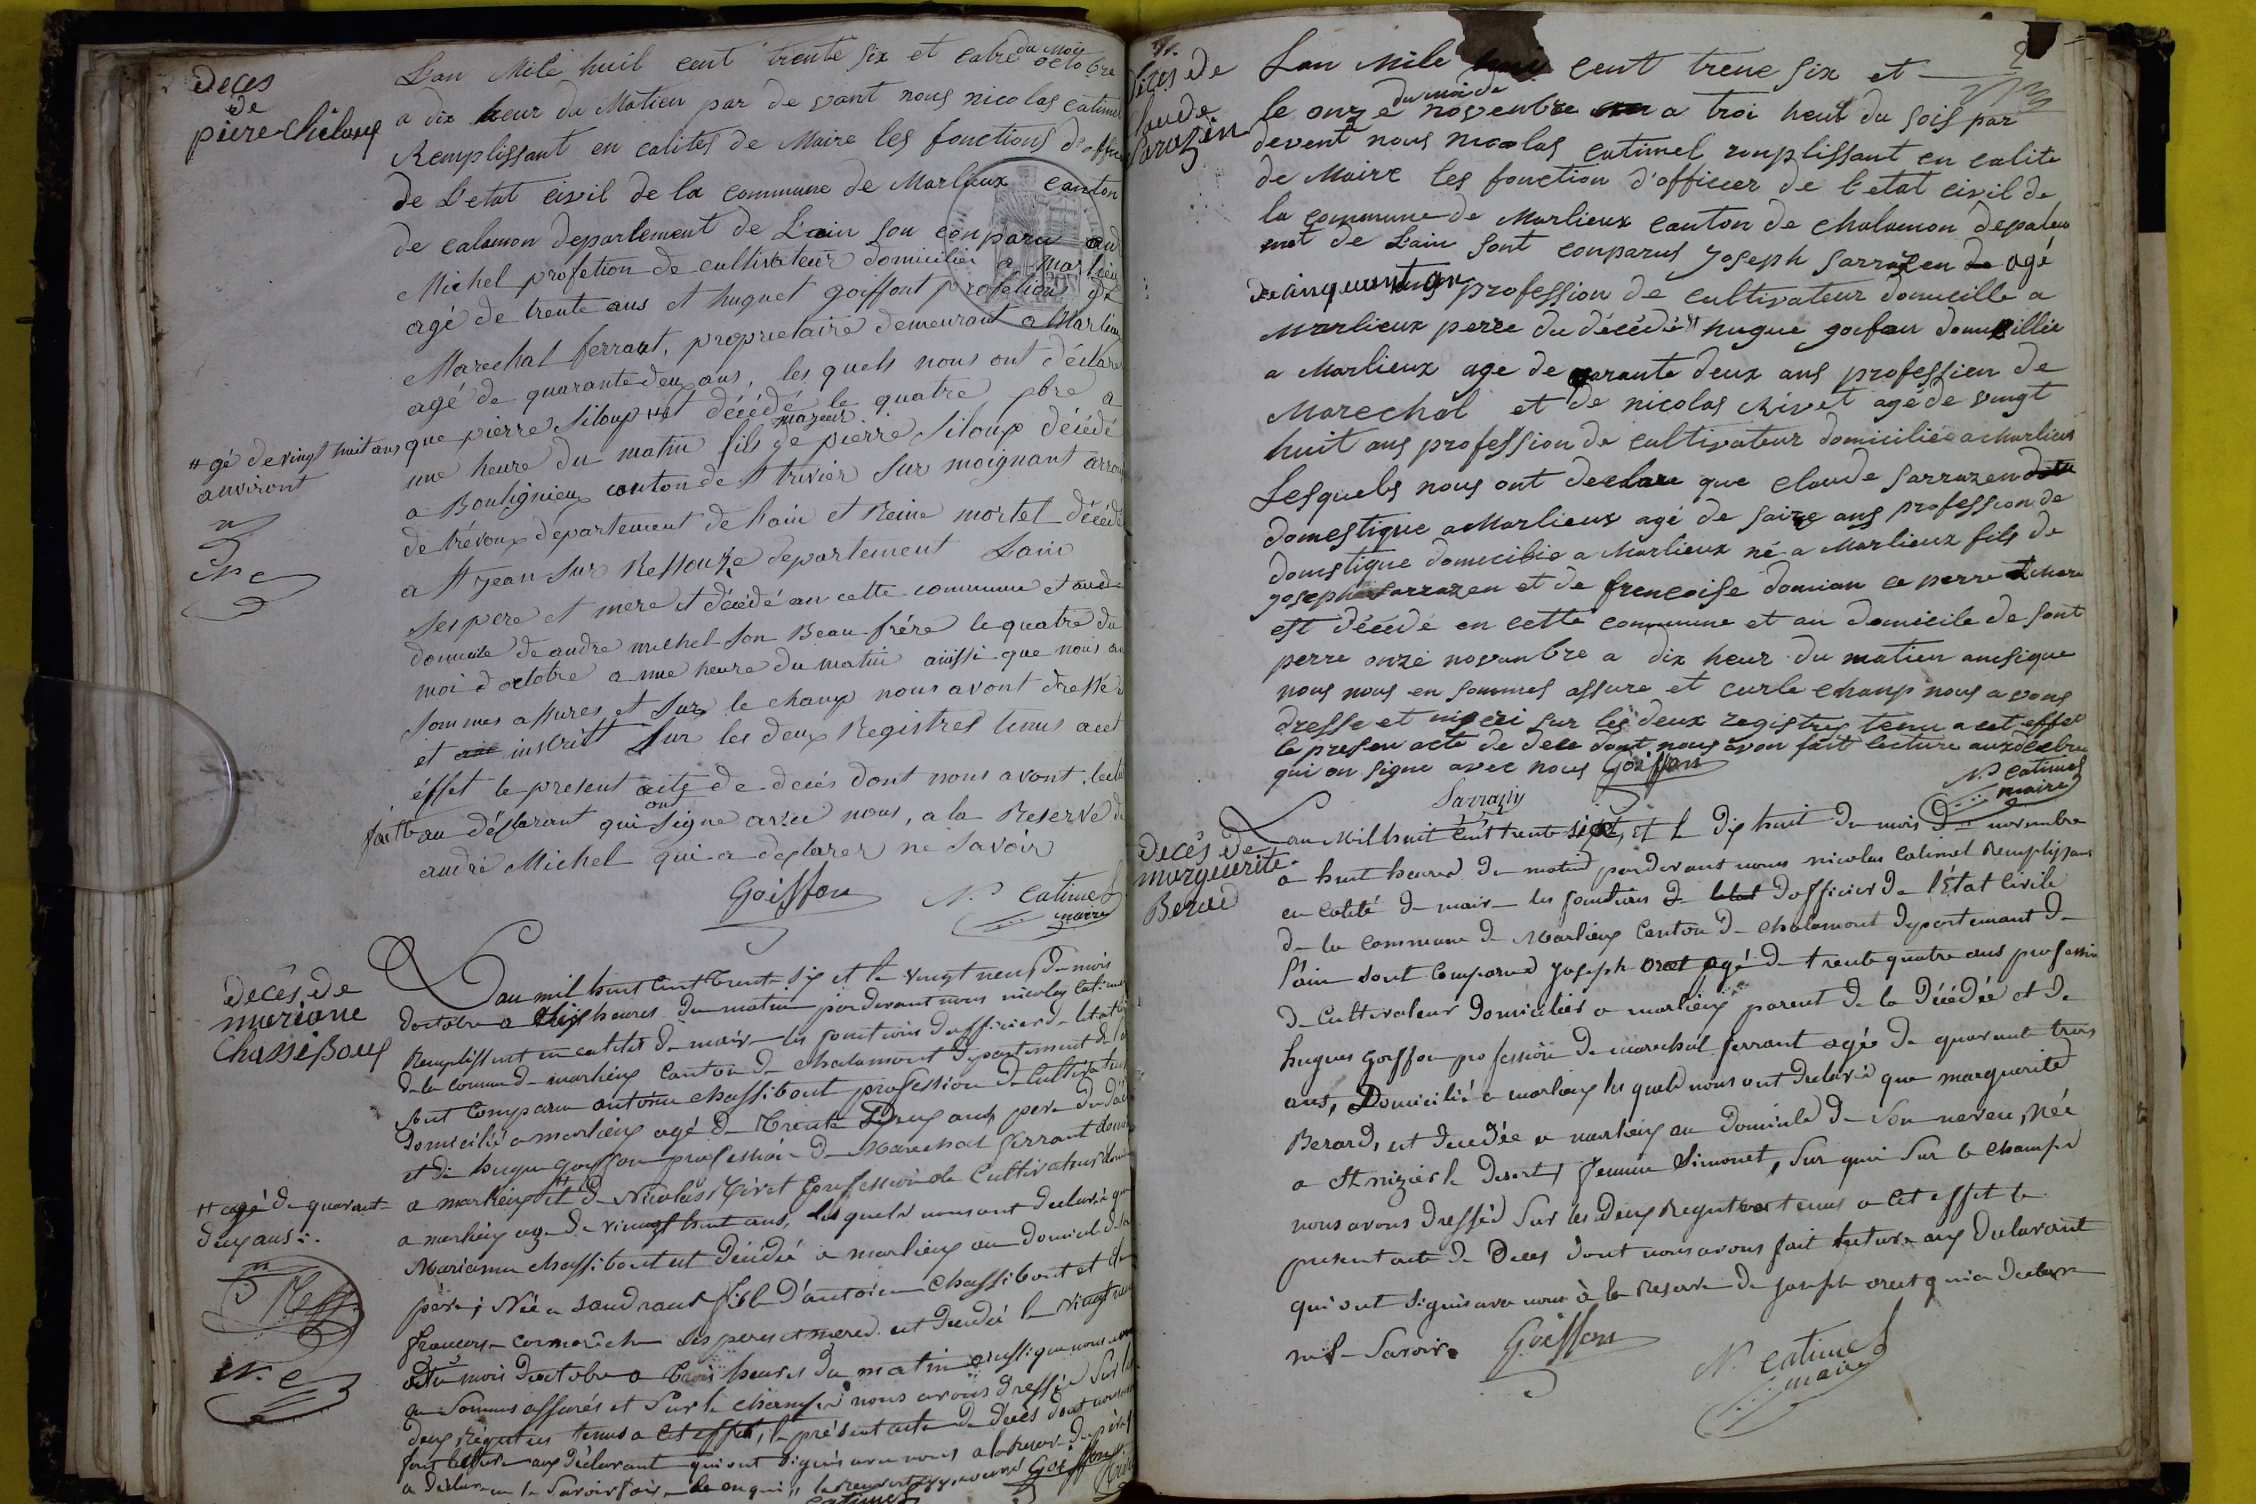 deces
de
piere Chiloup
L'an Mile huit cent trente six et catre du Mois octobre
a dix heur du Matien par de vant nous nicolas catimel
Remplissant en calites de Maire les fonctions d'offic
de L'etat civil de la commune de Marlieux canton
de calamon departement de L'ain son conparu and
Michel profetion de cultivateur domicilié a Marlieu
agé de trente ans et huguet goiffont profetion de
Marechal ferrant, proprietaire demeurant a Marlieu
agé de quarante deux ans, les quels nous ont déclare
que pierre Siloup # est décédé le quatre xbre a
# gé de vingt huit ans
anviront
une heure du matin fils majeur de pierre Siloup décédé
a Boulignieux canton de St trivier sur moignant arron
de trévoux departement de l'ain et Reine mortel décédé
a St jean sur Ressouze departement Lain
ses pere et mere et décédé an cette commune et au
domicile de andre michel son Beau-frére le quatre du
moi d'octobre a une heure du matin ainssi que nous
sommes assures et sur le chanp nous avont dressé
et inscritt sur les deux Registres tenus a cet
éffet le present acte de decés dont nous avont lectu
faitte au déclarant qui ont signe avec nous, a la Reserve de
andré Michel qui a declarer ne savoir
Goiffon N. catimel
maire
N. C
decês de
mariane
chassiBoux
L'an mil huit cent trente six et le vingt neuf du mois
doctobre a heures du matin pardevant nous nicolas Catimel
Remplissant en calités de maire les fonctions dofficier de letat
de la comune de marlieux canton de chalamont departement de l'a
sont comparu antoine chassibout profession de Cultivateur
domicilié a marlieux agé de trente deux ans pere du déc
et de hugue Goiffon profession de Marechal ferrant domi
a marlieux # et de Nicolas Rivet profession de Cultivateur
# agé de quarant
deux ans.
a marlieux age de vingt huit ans, lesquels nous ont declaré que
Marianne chassibout est décédée a marlieux au domicile de
père; Née a sandrans fille d'antoine chassibout et de
francoise ses peres et meres est decedée le vingt neuf
du mois doctobre a trois heures du matin ainssi que nous
en sommes assurés et sur le champ nous avons dressé sur les
deux Registres tenus a cet effet, le présent acte de decés dont nous
fait lecture aux déclarant qui ont signés avec nous a la reserve du père
a declaré ne le savoir Goiffon
catimel
N. C
deces de
claude
Sarazin
L'an Mile huit cent trene six et
le onze du moi de novenbre a troi heur du soir par
devent nous nicolas catimel ranplissant en calite
de Maire les fonction d'officier de l'etat civil de
la commune de Marlieux canton de chalamon depatem
mot de L'ain sont conparus Joseph Sarrazen de agé
de cinquant an profession de cultivateur domicille a
Marlieux perre du décédé et hugue goifan domicillié
a Marlieux age de qarante deux ans profession de
Marechal et de nicolas Rivet agé de vingt
huit ans profession de cultivateur domiciliée a Marlieux
Lesquels nous ont declare que claude Sarrazen
domestique a Marlieux agé de saize ans profession de
domstique domicilie a Marlieux né a Marlieux fils de
joseph Sarrazen et de frencoise domian ce perre et Mere
est décédé en cette commune et au domicile de sont
perre onze novanbre a dix heur du matien ansique
nous nous en sommes assure et curle chanp nous avons
dresse et inseri sur les deux registres tenu a cet effet
le presen acte de dece dont nous avon fait lecture
qui on signe avec nous Goiffon
Sarrazin N. catimel
maire
decês de
marguerite
Berard
L'an Mil huit cent trente six, et le dix huit du mois de novembre
a huit heures du matin pardevant nous nicolas Catimel Remplissant
en calité de maire les fonctions de dofficier de l'État Civile
de la commune de Marlieux Canton de chalamont departemant de
l'ain sont comparus Joseph agé de trente quatre ans profession
de Cultivateur domicilier a marlieux parent de la décédée et de
hugues Goiffon profession de marechal ferrant agé de quarante trois
ans, domicilié a marlieux les quels nous ont declaré que marguerite
Berard, est decedée a marlieux au domicile de son neveu, née
a St nizier le desert, femme Simonet, sur quoi sur le champ
nous avons dressé sur les deux Registres tenus a cet effet le
present acte de deces dont nous avons fait lecture aux declarant
qui ont signés avec nous à la reserve de joseph qui a declaré
ne le savoir. Goiffon N. catimel
maire